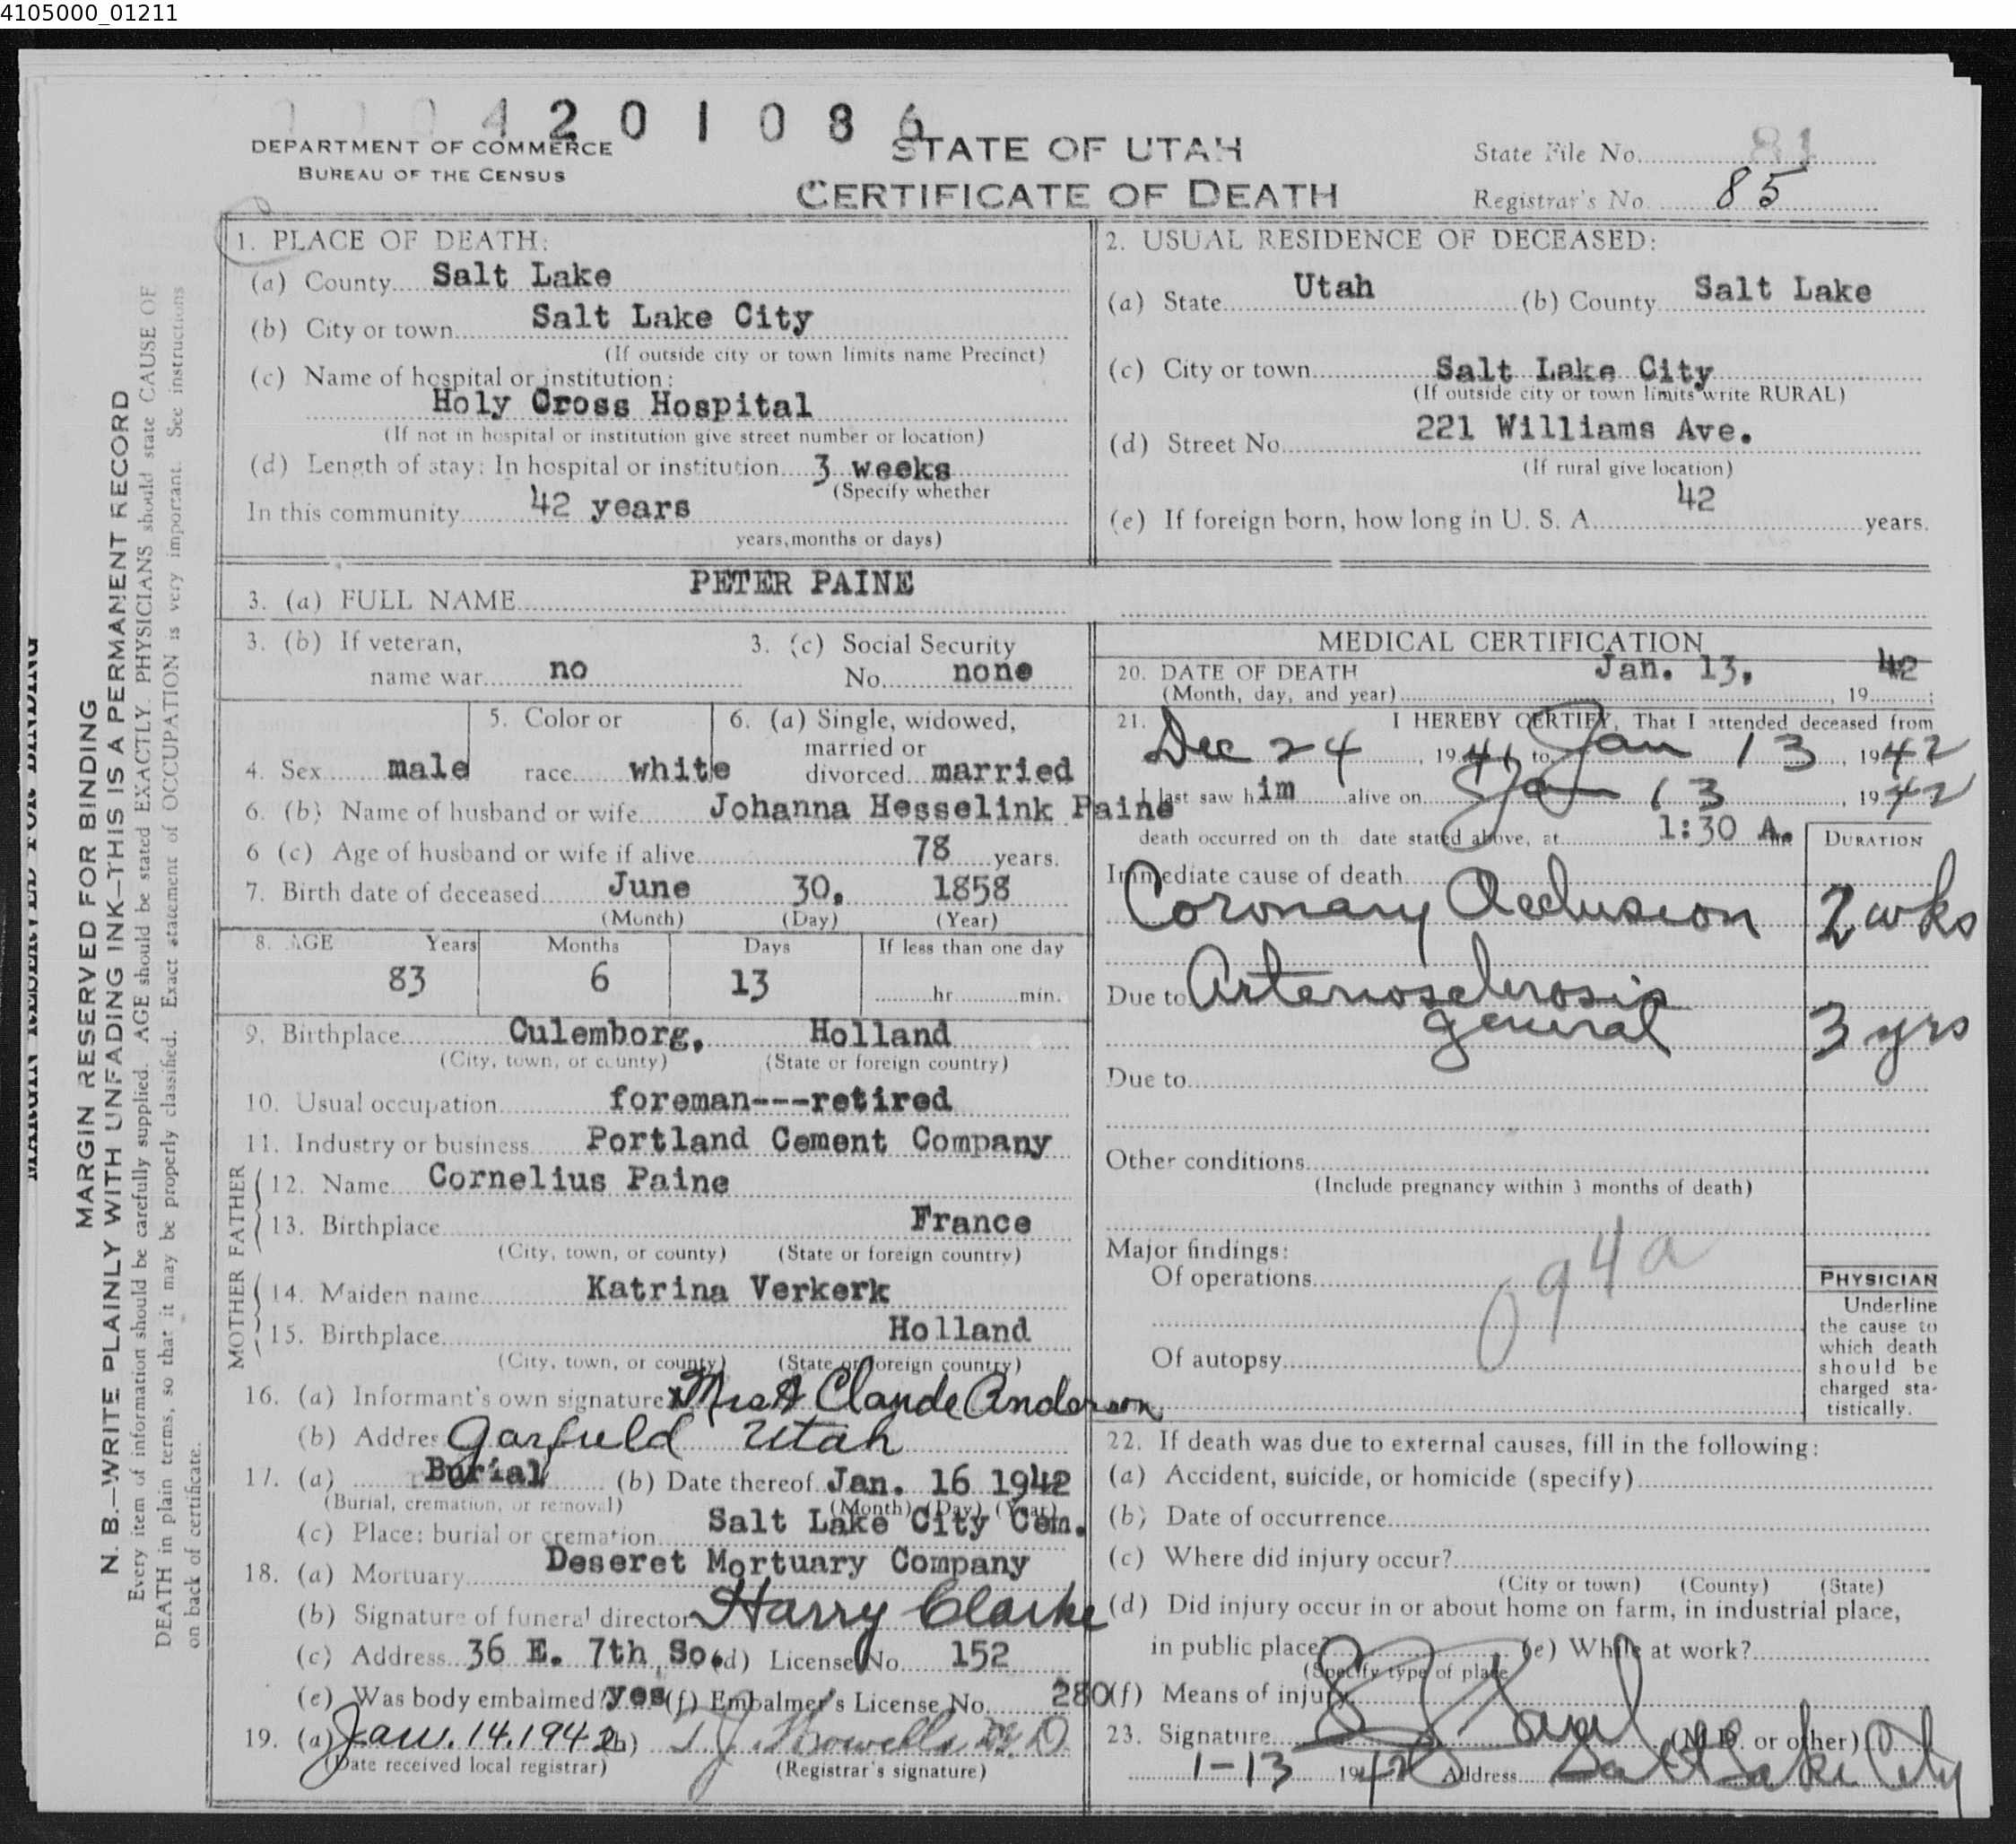 4105000_01211
4 2 0 1 0 8 6
DEPARTMENT OF COMMERCE
BUREAU OF THE CENSUS
STATE OF UTAH
CERTIFICATE OF DEATH
State File No. 81
Registrar's No. 85
MARGIN RESERVED FOR BINDING
MARGIN RESERVED FOR BINDING
N. B.—WRITE PLAINLY WITH UNFADING INK—THIS IS A PERMANENT RECORD
Every item of information should be carefully supplied. AGE should be stated EXACTLY. PHYSICIANS should state CAUSE OF
DEATH in plain terms, so that it may be properly classified. Exact statement of OCCUPATION is very important. See instructions
on back of certificate.
1. PLACE OF DEATH:
(a) County Salt Lake
(b) City or town Salt Lake City
(If outside city or town limits name Precinct)
(c) Name of hospital or institution:
Holy Cross Hospital
(If not in hospital or institution give street number or location)
(d) Length of stay: In hospital or institution 3 weeks
(Specify whether
In this community 42 years
years, months or days)
2. USUAL RESIDENCE OF DECEASED:
(a) State Utah (b) County Salt Lake
(c) City or town Salt Lake City
(If outside city or town limits write RURAL)
(d) Street No. 221 Williams Ave.
(If rural give location)
(e) If foreign born, how long in U. S. A. 42 years.
3. (a) FULL NAME PETER PAINE
3. (b) If veteran,
name war no
3. (c) Social Security
No. none
4. Sex male
5. Color or
race white
6. (a) Single, widowed,
married or
divorced married
6. (b) Name of husband or wife Johanna Hesselink Paine
6 (c) Age of husband or wife if alive 78 years.
7. Birth date of deceased June 30, 1858
(Month) (Day) (Year)
8. AGE Years Months Days If less than one day
83 6 13 hr. min.
9. Birthplace Culemborg, Holland
(City, town, or county) (State or foreign country)
10. Usual occupation foreman---retired
11. Industry or business Portland Cement Company
FATHER
12. Name Cornelius Paine
13. Birthplace France
(City, town, or county) (State or foreign country)
MOTHER
14. Maiden name Katrina Verkerk
15. Birthplace Holland
(City, town, or county) (State or foreign country)
16. (a) Informant's own signature x Mrs A Claude Anderson
(b) Address Garfield Utah
17. (a) Burial (b) Date thereof Jan. 16 1942
(Burial, cremation, or removal) (Month) (Day) (Year)
(c) Place: burial or cremation Salt Lake City Cem.
18. (a) Mortuary Deseret Mortuary Company
(b) Signature of funeral director Harry Clarke
(c) Address 36 E. 7th So. (d) License No. 152
(e) Was body embalmed? yes (f) Embalmer's License No. 280
19. (a) Jan. 14. 1942 (b) T. J. Howells M. D.
(Date received local registrar) (Registrar's signature)
MEDICAL CERTIFICATION
20. DATE OF DEATH Jan. 13, 42
(Month, day, and year) , 19 ;
21. I HEREBY CERTIFY, That I attended deceased from
Dec 24, 1941 to Jan 13, 1942
I last saw him alive on Jan 13, 1942
death occurred on the date stated above, at 1:30 A.m.
DURATION
Immediate cause of death
Coronary Occlusion 2 wks
Due to Arteriosclerosis
general 3 yrs
Due to
Other conditions
(Include pregnancy within 3 months of death)
Major findings:
Of operations
094a
Of autopsy
PHYSICIAN
Underline
the cause to
which death
should be
charged sta-
tistically.
22. If death was due to external causes, fill in the following:
(a) Accident, suicide, or homicide (specify)
(b) Date of occurrence
(c) Where did injury occur?
(City or town) (County) (State)
(d) Did injury occur in or about home on farm, in industrial place,
in public place? (e) While at work?
(Specify type of place
(f) Means of injury
23. Signature (M. D. or other)
1-13 1942 Address Salt Lake City